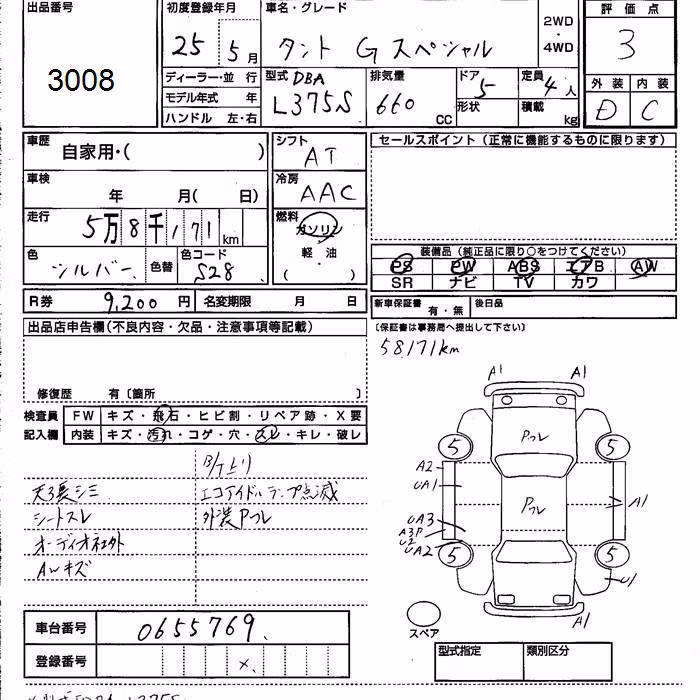 出品番号
3008
初度登録年月
25 5月
車名・グレード
タント Gスペシャル
2WD
・
4WD
評価点
3
外装 内装
D C
ディーラー・並行
モデル年式 年
ハンドル 左・右
型式 DBA
L375S
排気量
660
CC
ドア
5
形状
定員
4人
積載
kg
車歴
自家用・( )
シフト
AT
セールスポイント (正常に機能するものに限ります)
車検
年 月( 日)
冷房
AAC
走行
5万8千171km
燃料
ガソリン
軽・油
( )
色
シルバー
色替
色コード
S28
装備品 (純正品に限り○をつけてください)
PS PW ABS エアB AW
SR ナビ TV カワ
R券 9,200 円
名変期限 月 日
新車保証書 有・無
後日品
(保証書は事務局へ提出して下さい)
出品店申告欄(不良内容・欠品・注意事項等記載)
58,171km
修復歴 有〔箇所 〕
検査員
記入欄
FW キズ・飛石・ヒビ割・リペア跡・X要
内装 キズ・汚れ・コゲ・穴・スレ・キレ・破レ
天張シミ エコアイドルランプ点滅
シートスレ 外装Pフレ
オーディオ社外
AWキズ
A1 A1
Pフレ
5 5
A2
UA1
Pフレ
A1
UA3
A3P
U2
UA2
5 5
U1
A1
スペア
車台番号 0655769
登録番号 x
型式指定 類別区分